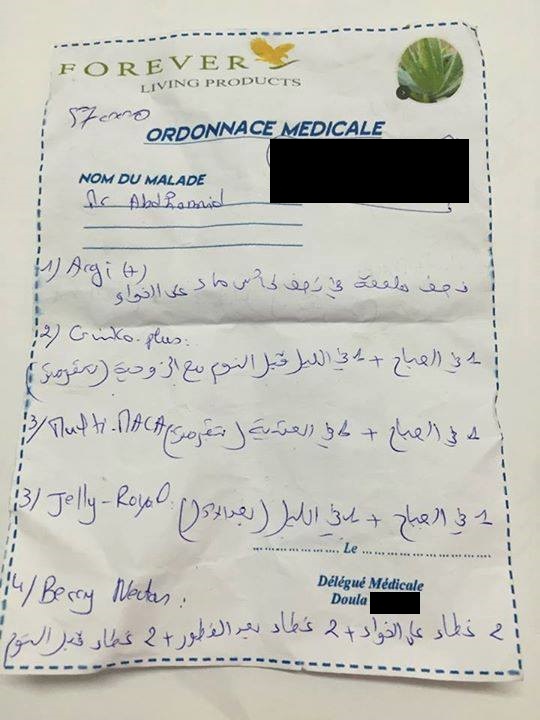 FOREVER
LIVING PRODUCTS
ORDONNACE MEDICALE
NOM DU MALADE
1) Argi (+)
نصف ملعقة في نصف كأس ماء على الخواء
2) Ginko-plus:
1 في الصباح + 1 في الليل قبل النوم مع الوجبة
3/ Multi-MACA
1 في الصباح + 1 في العشية
3/ Jelly-Royal
1 في الصباح + 1 في الليل
.................... Le ..............................
Délégué Médicale
Doula
4/ Berry Nectar:
2 غطاء على الخواء + 2 غطاء بعد الفطور + 2 غطاء قبل النوم